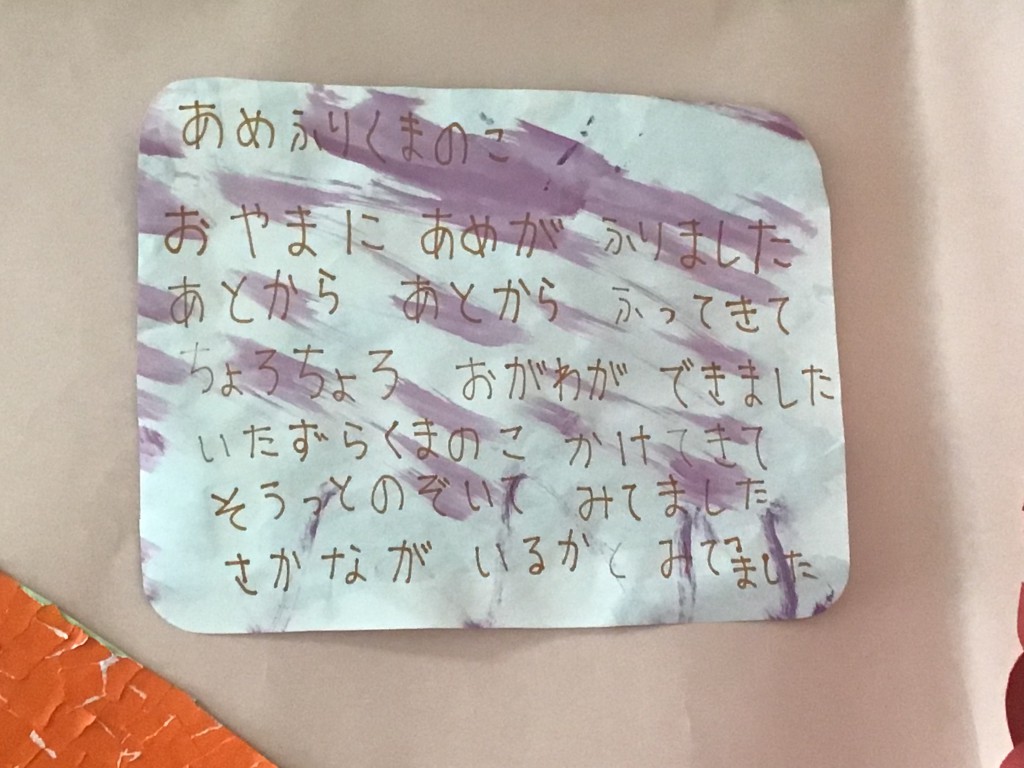 あめふりくまのこ
おやまに あめが ふりました
あとから あとから ふってきて
ちょろちょろ おがわが できました
いたずらくまのこ かけてきて
そうっとのぞいて みてました
さかなが いるかと みてました